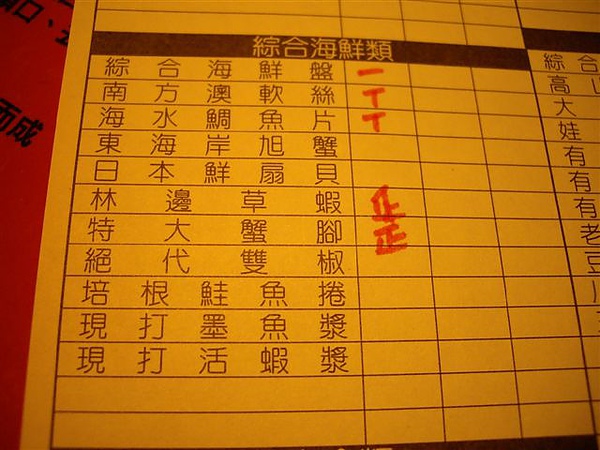 綜合海鮮類
綜合海鮮盤 一
南方澳軟絲 丅
海水鯛魚片 丅
東海岸旭蟹
日本鮮扇貝
林邊草蝦 正
特大蟹腳 正
絕代雙椒
培根鮭魚捲
現打墨魚漿
現打活蝦漿
綜合
高山
大
娃
有
有
有
老
豆
而成